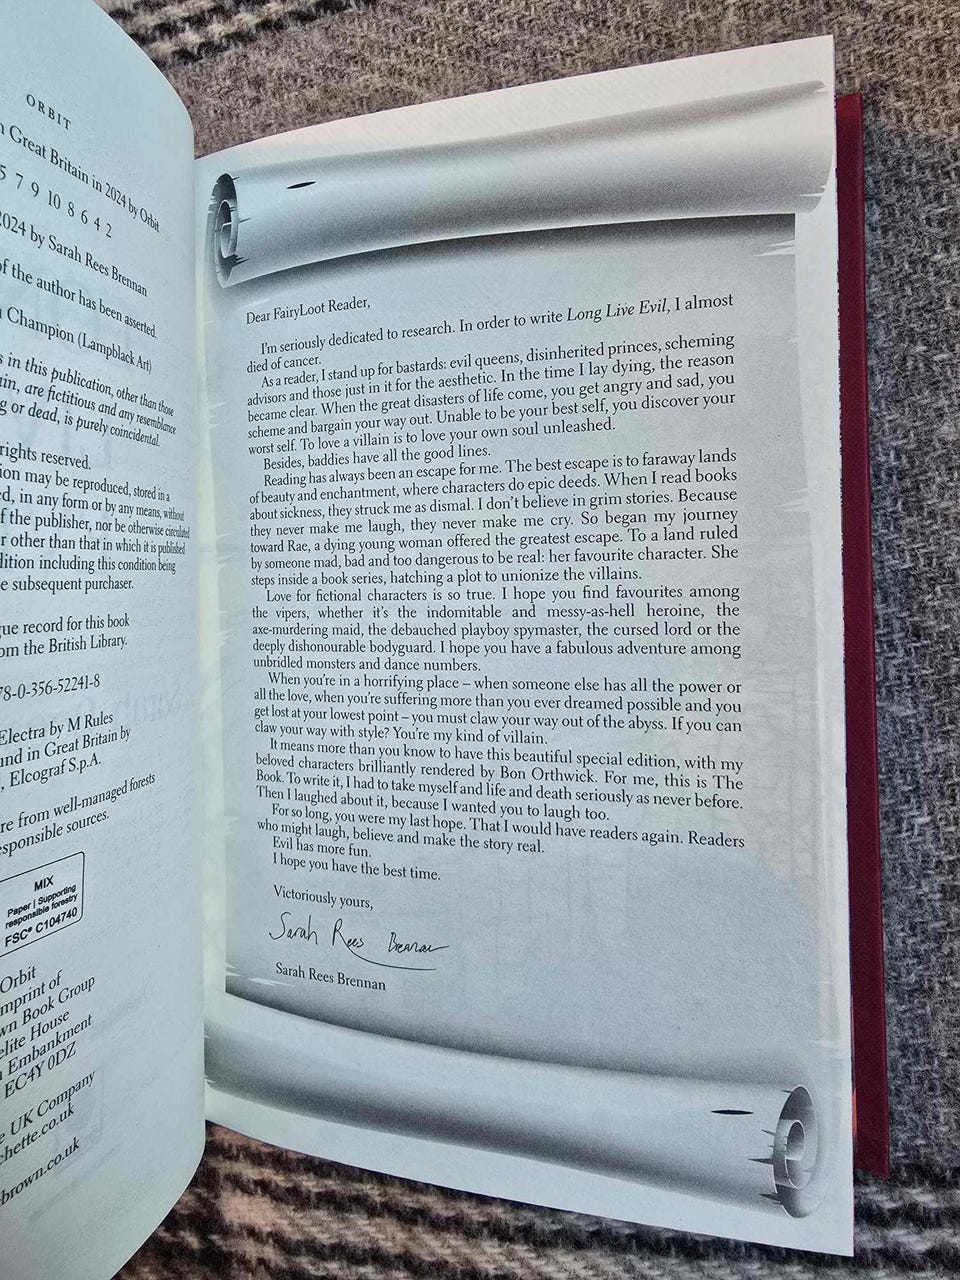 ORBIT
Great Britain in 2024 by Orbit
5 7 9 10 8 6 4 2
2024 by Sarah Rees Brennan
of the author has been asserted.
Champion (Lampblack Art)
in this publication, other than those
are fictitious and any resemblance
or dead, is purely coincidental.
rights reserved.
may be reproduced, stored in a
in any form or by any means, without
of the publisher, nor be otherwise circulated
other than that in which it is published
including this condition being
subsequent purchaser.
record for this book
from the British Library.
78-0-356-52241-8
Electra by M Rules
in Great Britain by
Elcograf S.p.A.
are from well-managed forests
responsible sources.
MIX
Paper | Supporting
responsible forestry
FSC® C104740
Orbit
imprint of
Book Group
House
Embankment
EC4Y 0DZ
UK Company
Dear FairyLoot Reader,
I'm seriously dedicated to research. In order to write Long Live Evil, I almost
died of cancer.
As a reader, I stand up for bastards: evil queens, disinherited princes, scheming
advisors and those just in it for the aesthetic. In the time I lay dying, the reason
became clear. When the great disasters of life come, you get angry and sad, you
scheme and bargain your way out. Unable to be your best self, you discover your
worst self. To love a villain is to love your own soul unleashed.
Besides, baddies have all the good lines.
Reading has always been an escape for me. The best escape is to faraway lands
of beauty and enchantment, where characters do epic deeds. When I read books
about sickness, they struck me as dismal. I don't believe in grim stories. Because
they never make me laugh, they never make me cry. So began my journey
toward Rae, a dying young woman offered the greatest escape. To a land ruled
by someone mad, bad and too dangerous to be real: her favourite character. She
steps inside a book series, hatching a plot to unionize the villains.
Love for fictional characters is so true. I hope you find favourites among
the vipers, whether it's the indomitable and messy-as-hell heroine, the
axe-murdering maid, the debauched playboy spymaster, the cursed lord or the
deeply dishonourable bodyguard. I hope you have a fabulous adventure among
unbridled monsters and dance numbers.
When you're in a horrifying place – when someone else has all the power or
all the love, when you're suffering more than you ever dreamed possible and you
get lost at your lowest point – you must claw your way out of the abyss. If you can
claw your way with style? You're my kind of villain.
It means more than you know to have this beautiful special edition, with my
beloved characters brilliantly rendered by Bon Orthwick. For me, this is The
Book. To write it, I had to take myself and life and death seriously as never before.
Then I laughed about it, because I wanted you to laugh too.
For so long, you were my last hope. That I would have readers again. Readers
who might laugh, believe and make the story real.
Evil has more fun.
I hope you have the best time.
Victoriously yours,
Sarah Rees Brennan
Sarah Rees Brennan